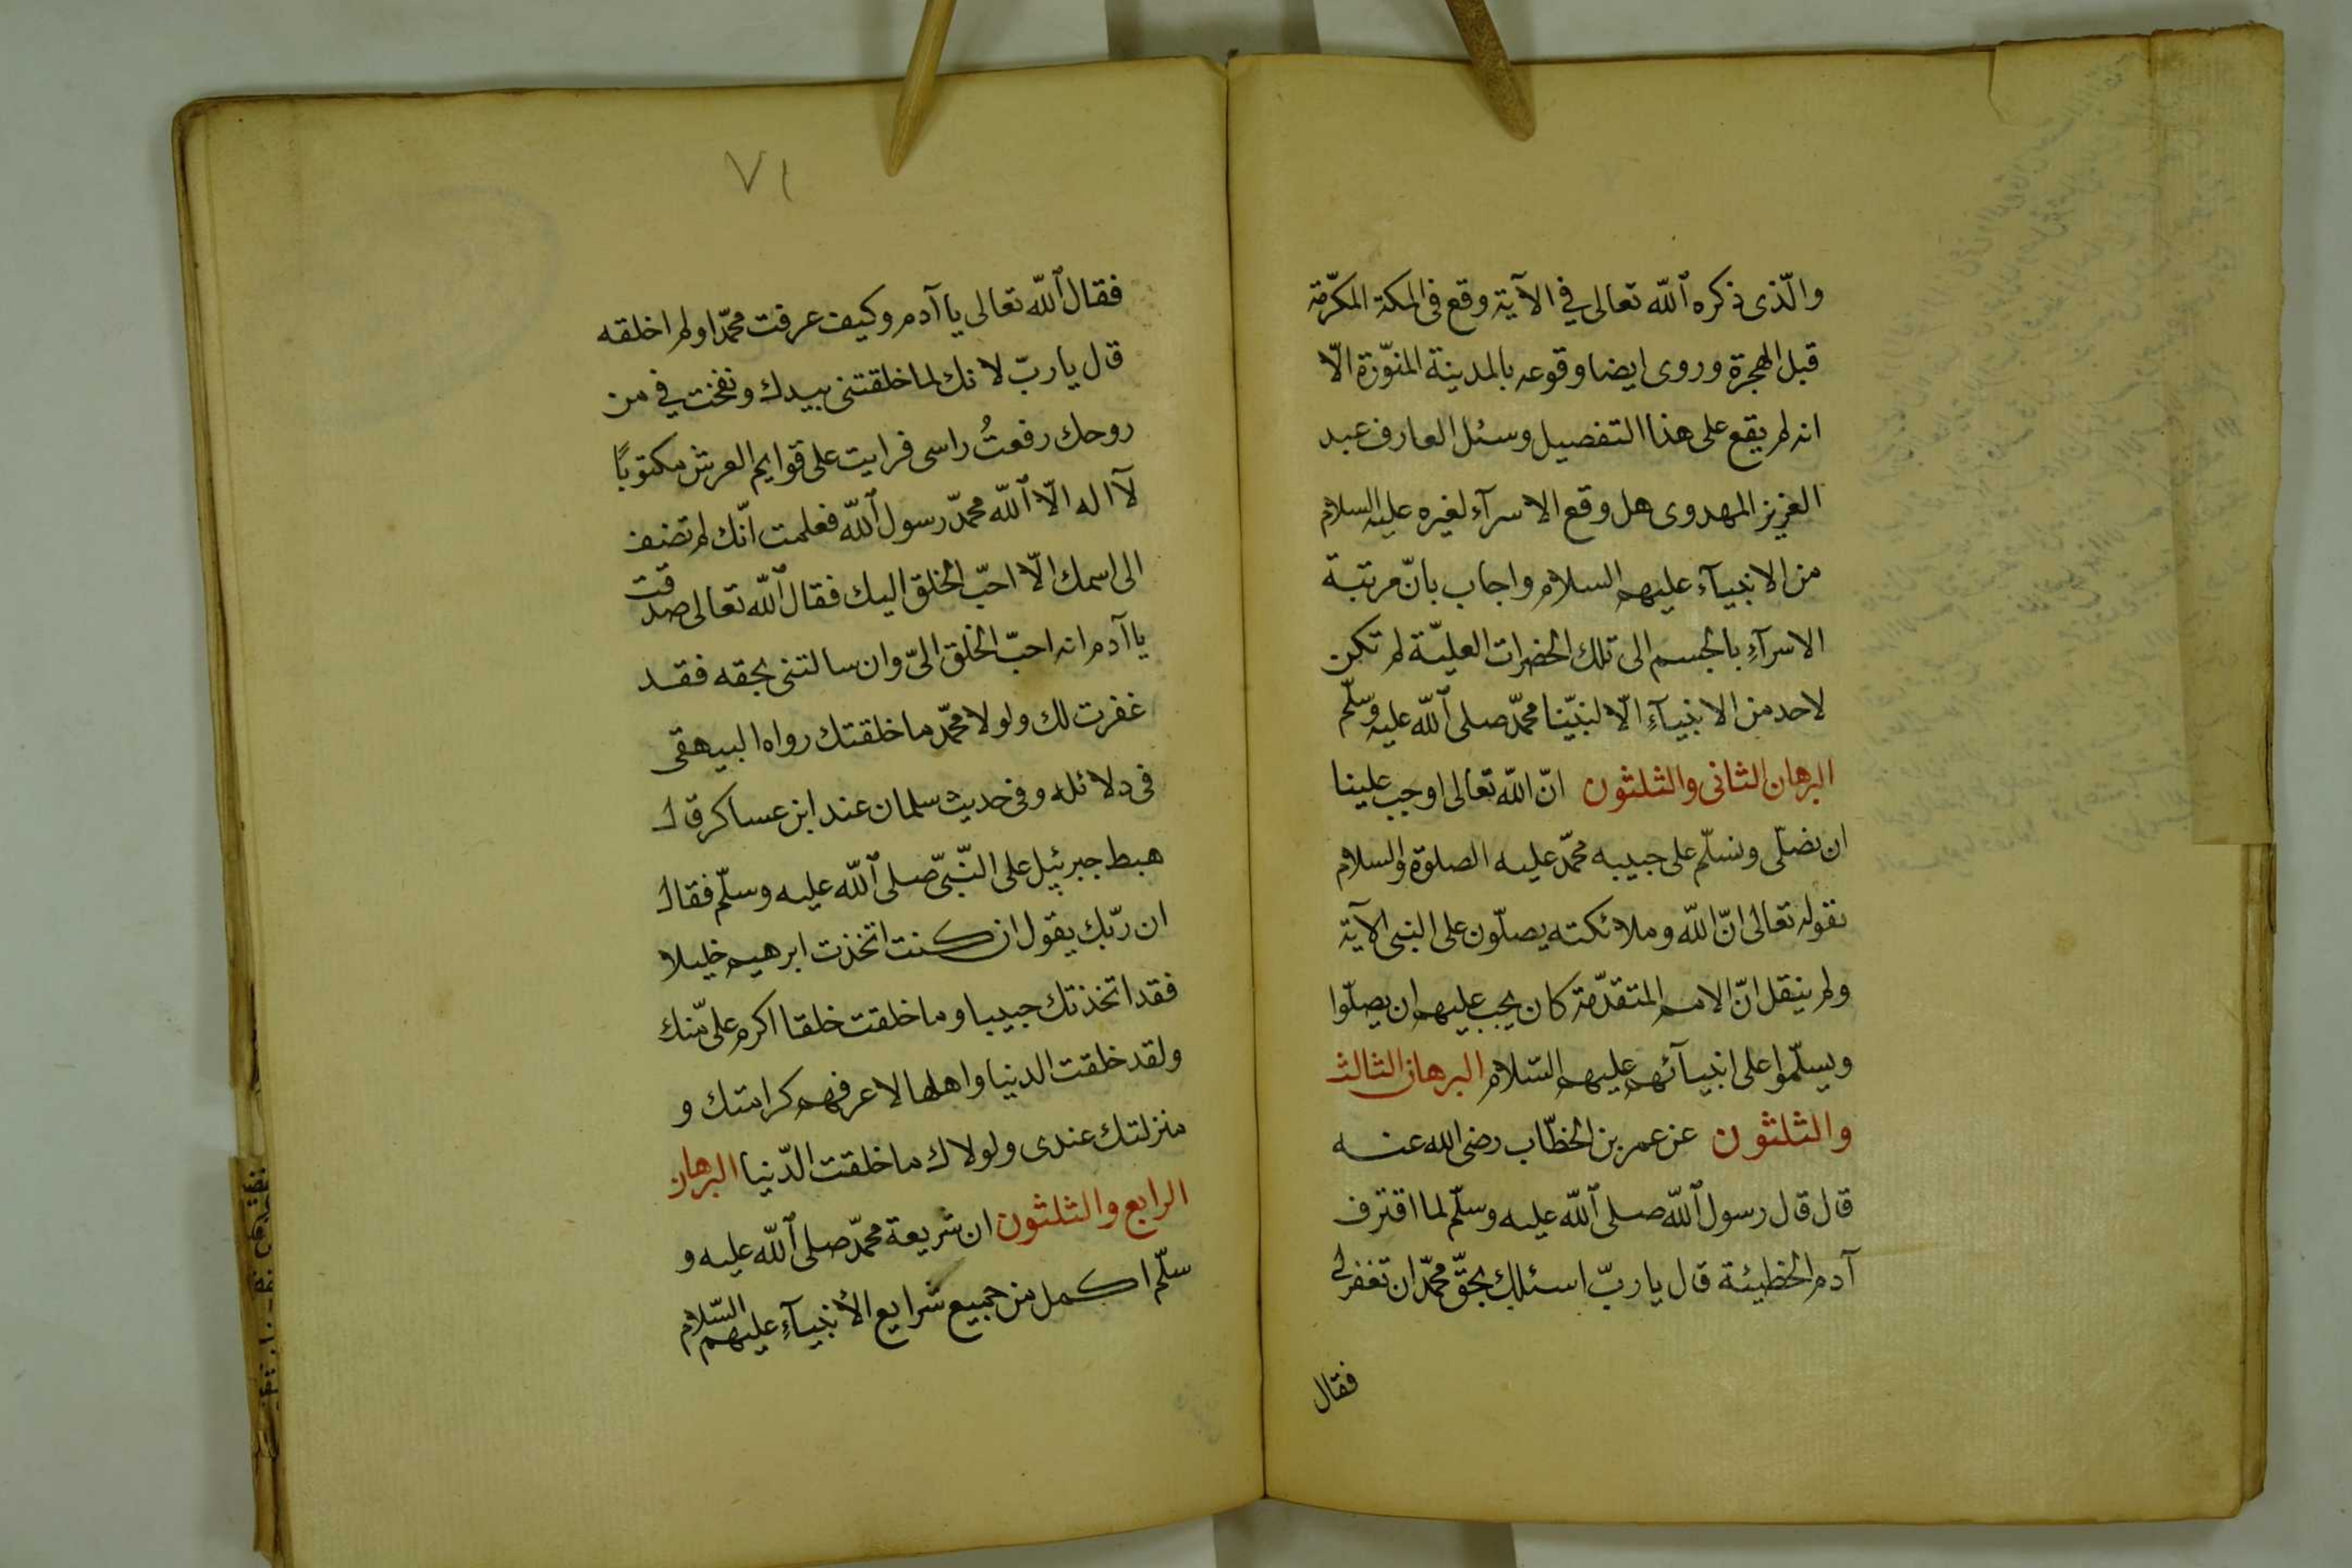 والّذى ذكره الله تعالى في الآية وقع فى المكة المكرّمة
قبل الهجرة وروى ايضا وقوعه بالمدينة المنوّرة الّا
انه لم يقع على هذا التفصيل وسئل العارف عبد
العزيز المهدوى هل وقع الاسرآء لغيره عليه السلام
من الانبيآء عليهم السلام واجاب بانّ مرتبة
الاسرآءِ بالجسم الى تلك الحضرات العليّة لم تكن
لاحد من الانبيآءِ الّا لنبيّنا محمّد صلى الله عليه وسلّم
البرهان الثانى والثلثون انّ الله تعالى اوجب علينا
ان نصلّى ونسلّم على حبيبه محمّد عليه الصلوة والسلام
بقوله تعالى انّ الله وملائكته يصلّون على النبى الآية
ولم ينقل انّ الامم المتقدّمة كان يجب عليهم ان يصلّوا
ويسلّموا على انبيآئهم عليهم السّلام البرهان الثالث
والثلثون عن عمر بن الخطّاب رضى الله عنه
قال قال رسول الله صلى الله عليه وسلّم لما اقترف
آدم الخطيئة قال يا ربّ اسئلك بحقّ محمّد ان تغفر لى
فقال
٧١
فقال الله تعالى يا آدم وكيف عرفت محمّدا ولم اخلقه
قال يا ربّ لانك لما خلقتنى بيدك ونفخت في من
روحك رفعتُ راسى فرايت على قوايم العرش مكتوبًا
لآ اله الّا الله محمّد رسول الله فعلمت انّك لم تضف
الى اسمك الّا احبّ الخلق اليك فقال الله تعالى صدقت
يا آدم انه احبّ الخلق الىّ وان سالتنى بحقه فقد
غفرت لك ولولا محمّد ما خلقتك رواه البيهقى
فى دلائله وفى حديث سلمان عند ابن عساكر قال
هبط جبرئيل على النّبىّ صلى الله عليه وسلّم فقال
ان ربّك يقول ان كنت اتخذت ابرهيم خليلا
فقد اتخذتك حبيبا وما خلقت خلقا اكرم علىّ منك
ولقد خلقت الدنيا واهلها لاعرفهم كرامتك و
منزلتك عندى ولولاك ما خلقت الدّنيا البرهان
الرابع والثلثون ان شريعة محمّد صلى الله عليه و
سلّم اكمل من جميع شرايع الأنبيآءِ عليهم السّلام